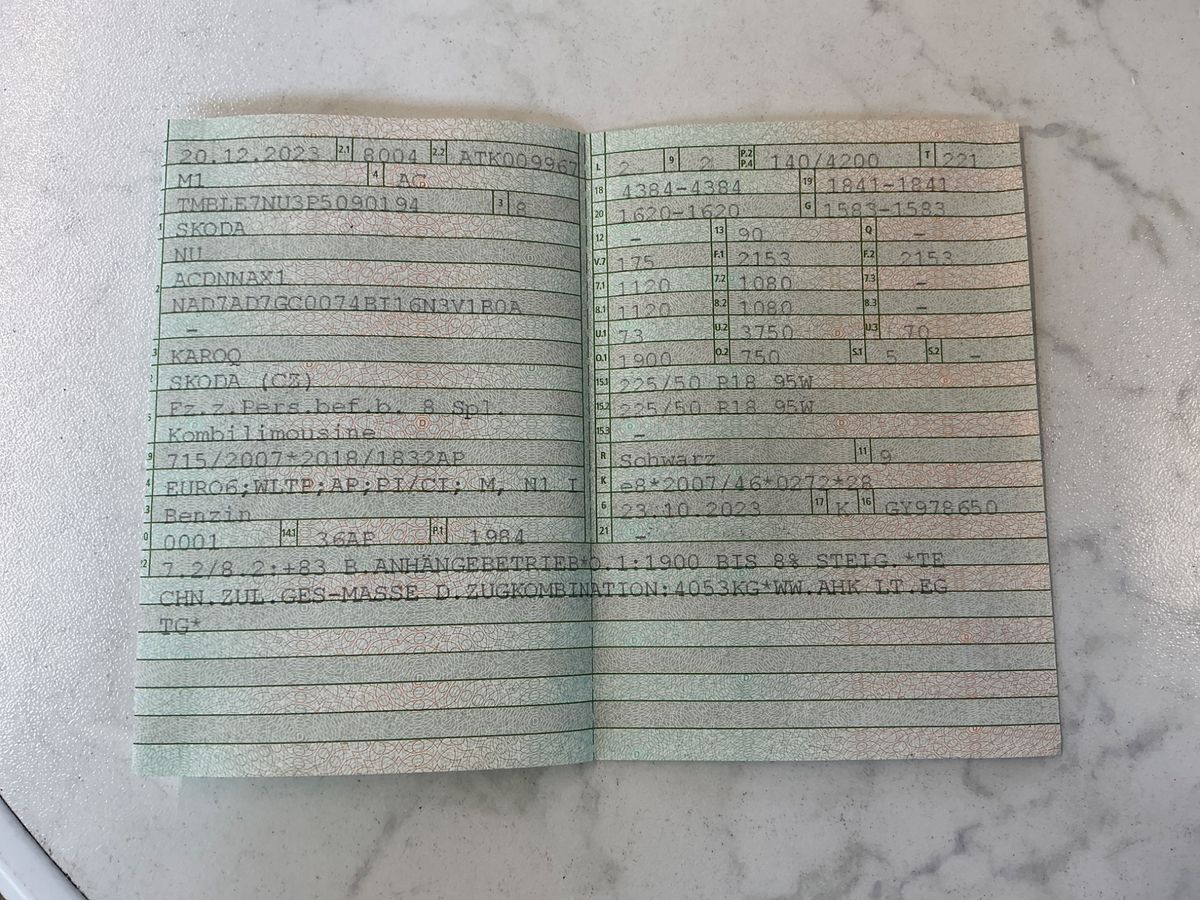 20.12.2023 2.1 8004 2.2 ATK009967
M1 4 AC
TMBLE7NU3P5090194 3 8
SKODA
NU
ACDNNAX1
NAD7AD7GC0074BI116N3V1R0A
-
KAROQ
SKODA (CZ)
Fz.z.Pers.bef.b. 8 Spl.
Kombilimousine
715/2007*2018/1832AP
EURO6;WLTP;AP;PI/CI; M, N1 I
Benzin
0001 14.1 36AP P.1 1984
L 2 9 2 P.2 P.4 140/4200 T 221
18 4384-4384 19 1841-1841
20 1620-1620 G 1583-1583
12 - 13 90 Q -
V.7 175 F.1 2153 F.2 2153
7.1 1120 7.2 1080 7.3 -
8.1 1120 8.2 1080 8.3 -
U.1 73 U.2 3750 U.3 70
O.1 1900 O.2 750 S.1 5 S.2 -
15.1 225/50 R18 95W
15.2 225/50 R18 95W
15.3 -
R Schwarz 11 9
K e8*2007/46*0272*28
6 23.10.2023 17 K 16 GY978650
21 -
7.2/8.2:+83 B.ANHÄNGEBETRIEB*O.1:1900 BIS 8% STEIG.*TE
CHN.ZUL.GES-MASSE D.ZUGKOMBINATION:4053KG*WW.AHK LT.EG
TG*